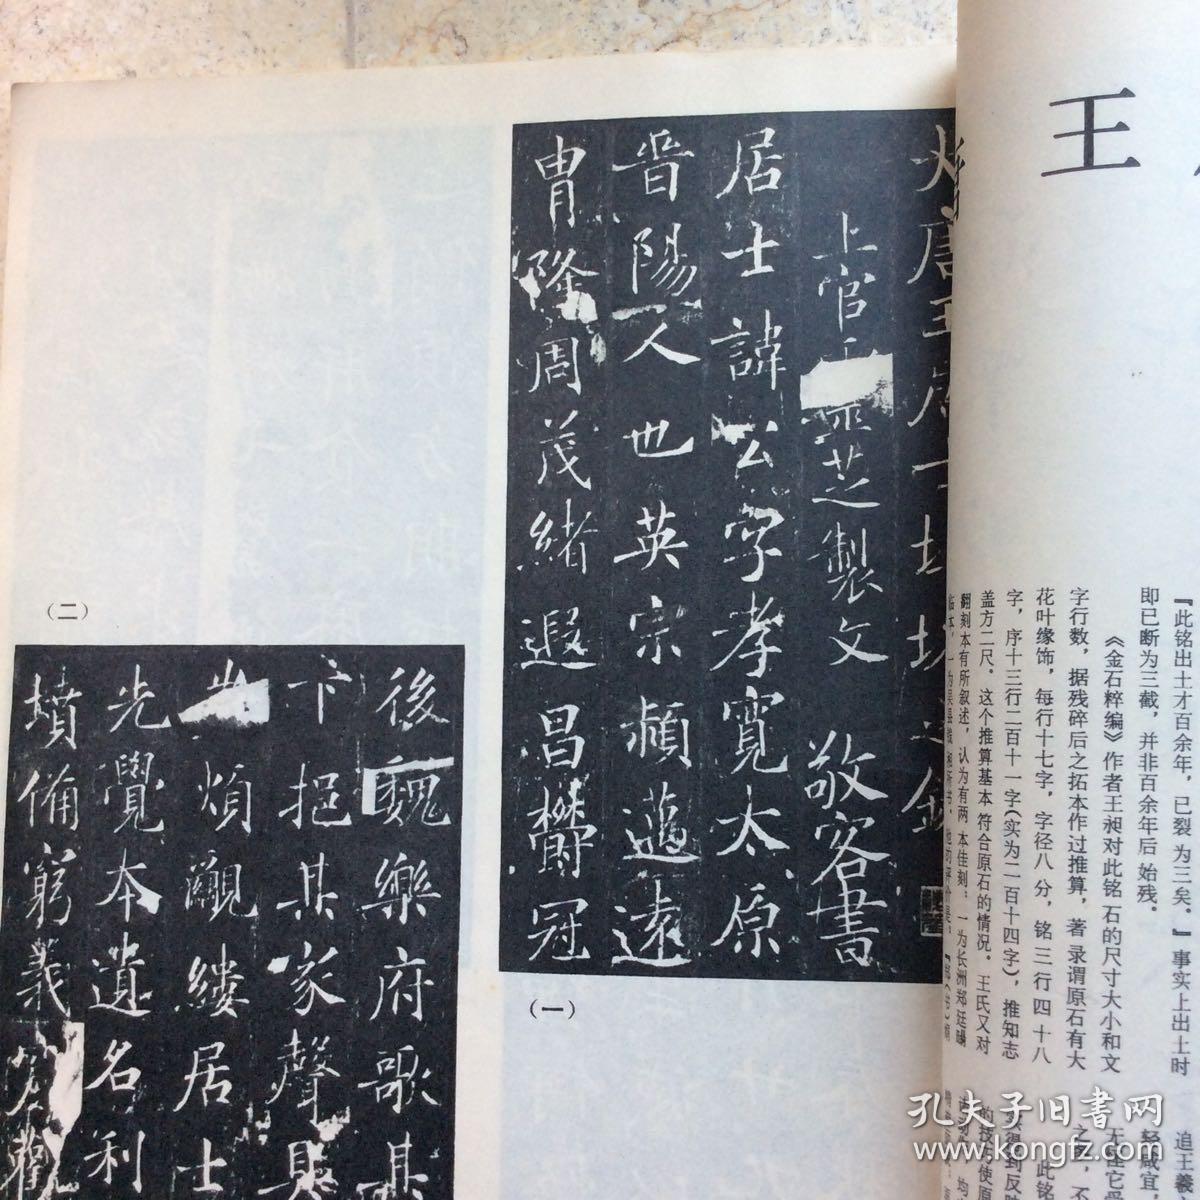 王
『此铭出土才百余年，已裂为三矣。』事实上出土时
即已断为三截，并非百余年后始残。
《金石粹编》作者王昶对此铭石的尺寸大小和文
字行数，据残碎后之拓本作过推算，著录谓原石有大
花叶缘饰，每行十七字，字径八分，铭三行四十八
字，序十三行二百十一字（实为二百十四字），推知志
盖方二尺。这个推算基本符合原石的情况。王氏又对
翻刻本有所叙述，认为有两本佳刻：一为长洲郑廷旸
大唐王居士塼塔之銘
上官靈芝製文 敬客書
居士諱公字孝寬太原
晉陽人也英宗穎邁遠
冑隆周茂緒遐昌欝冠
（一）
後魏樂府歌其
卞挹其家聲具
煩觀縷居士
先覺本遺名利
墳備窮義窟觀
（二）
孔夫子旧书网
www.kongfz.com